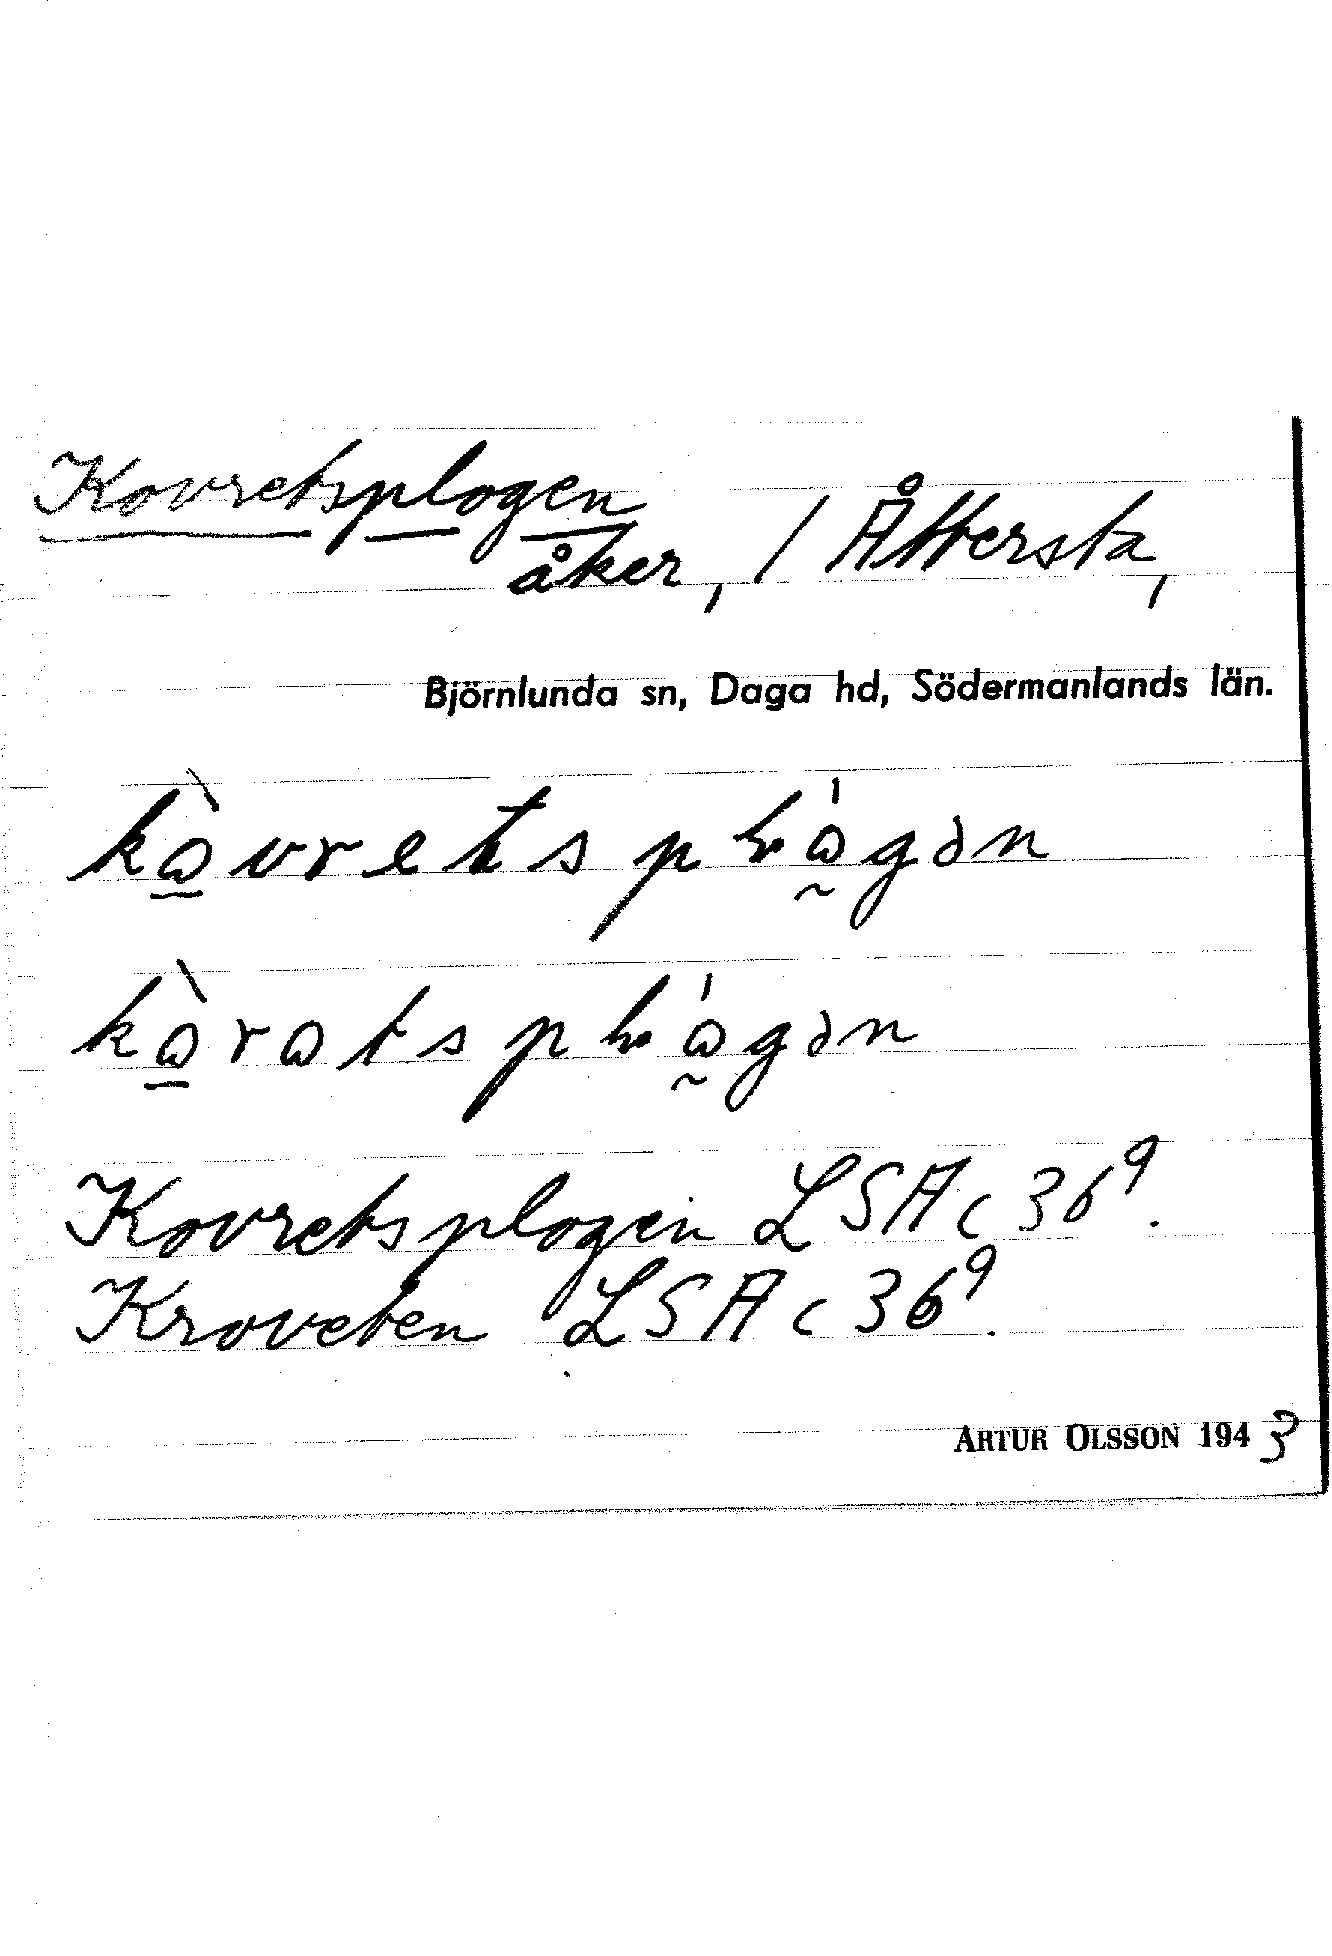 Kovretsplogen
åker, / Åttersta,
Björnlunda sn, Daga hd, Södermanlands län.
kɷ̲̀vretspɫɷ̰́gən
kɷ̲̀rɷtspɫɷ̰́gən
Kovretsplogen LSA c 36⁹.
Kroveten LSA c 36⁹.
ARTUR OLSSON 1943